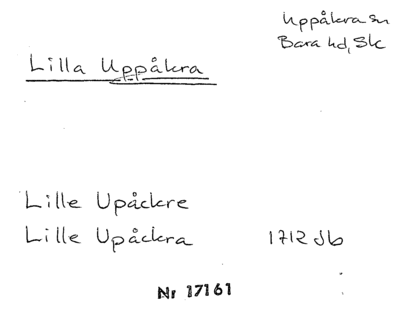 Uppåkra sn
Bara hd, Sk
Lilla Uppåkra
Lille Upåckre
Lille Upåckra 1712 Jb
Nr 17161